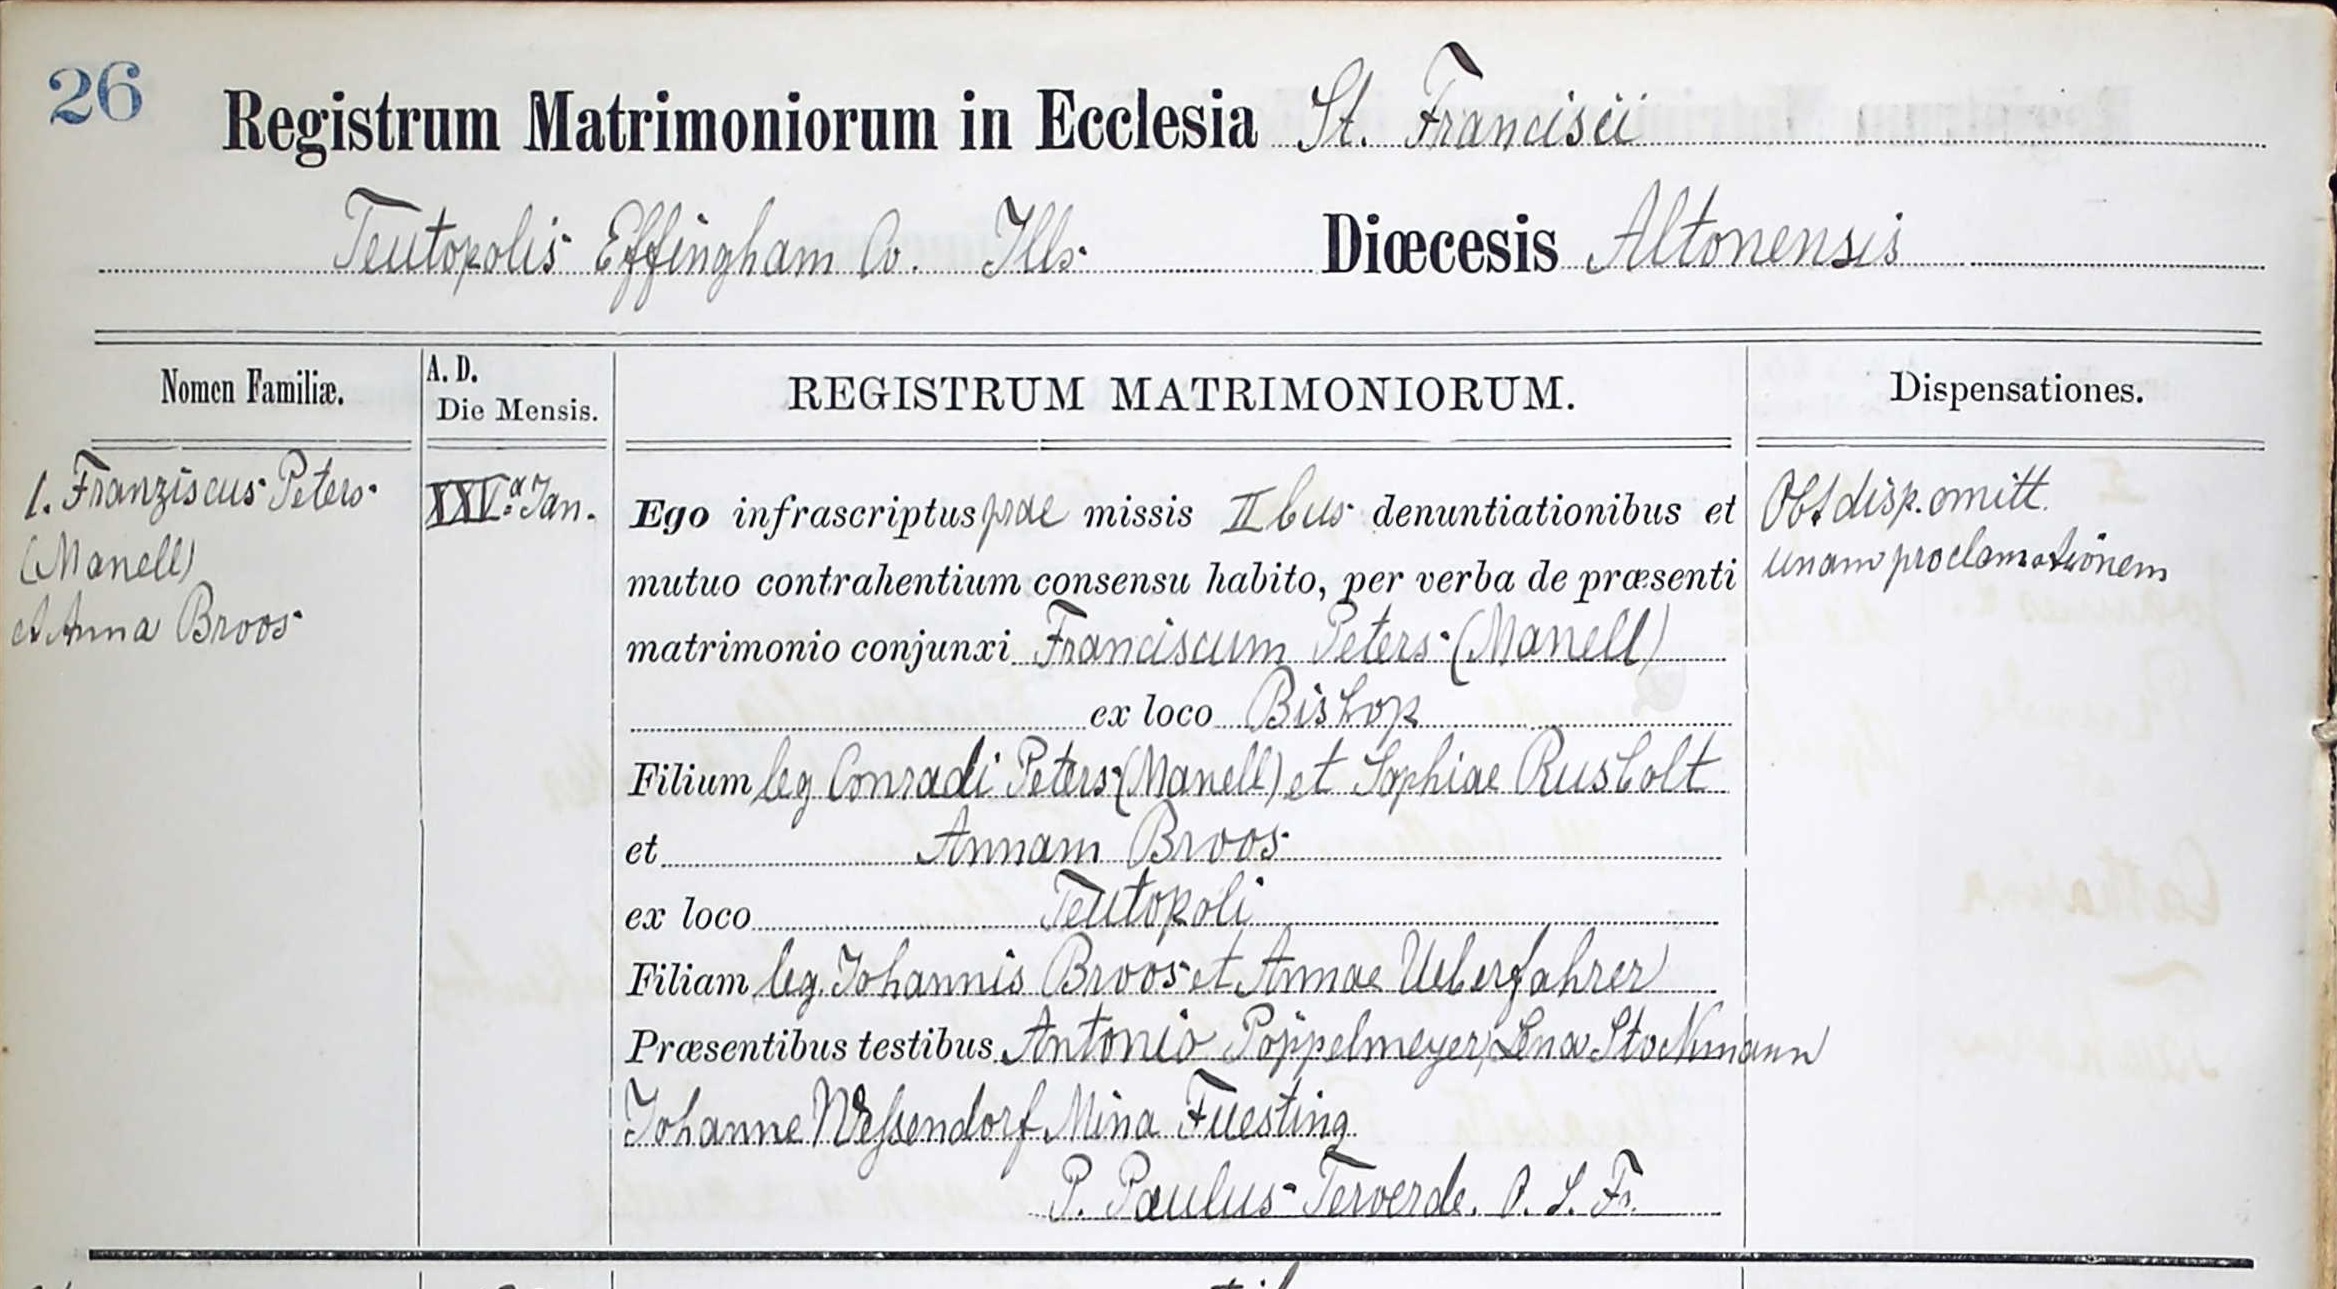 26
Registrum Matrimoniorum in Ecclesia St. Francisci
Teutopolis Effingham Co. Ills. Diœcesis Altonensis
Nomen Familiæ.
A. D.
Die Mensis.
REGISTRUM MATRIMONIORUM.
Dispensationes.
1. Franziscus Peters
(Manell)
et Anna Broos
XXV.a Jan.
Ego infrascriptus prae missis II bus denuntiationibus et
mutuo contrahentium consensu habito, per verba de præsenti
matrimonio conjunxi Franciscum Peters (Manell)
ex loco Bishop
Filium leg Conradi Peters (Manell) et Sophiae Rusbolt
et Annam Broos
ex loco Teutopoli
Filiam leg. Johannis Broos et Annae Ueberfahrer
Præsentibus testibus Antonio Pöppelmeyer, Lena Stockmann
Johanne Weſsendorf Mina Fuesting
P. Paulus Terverde. O. S. Fr.
Obt disp. omitt.
unam proclamationem